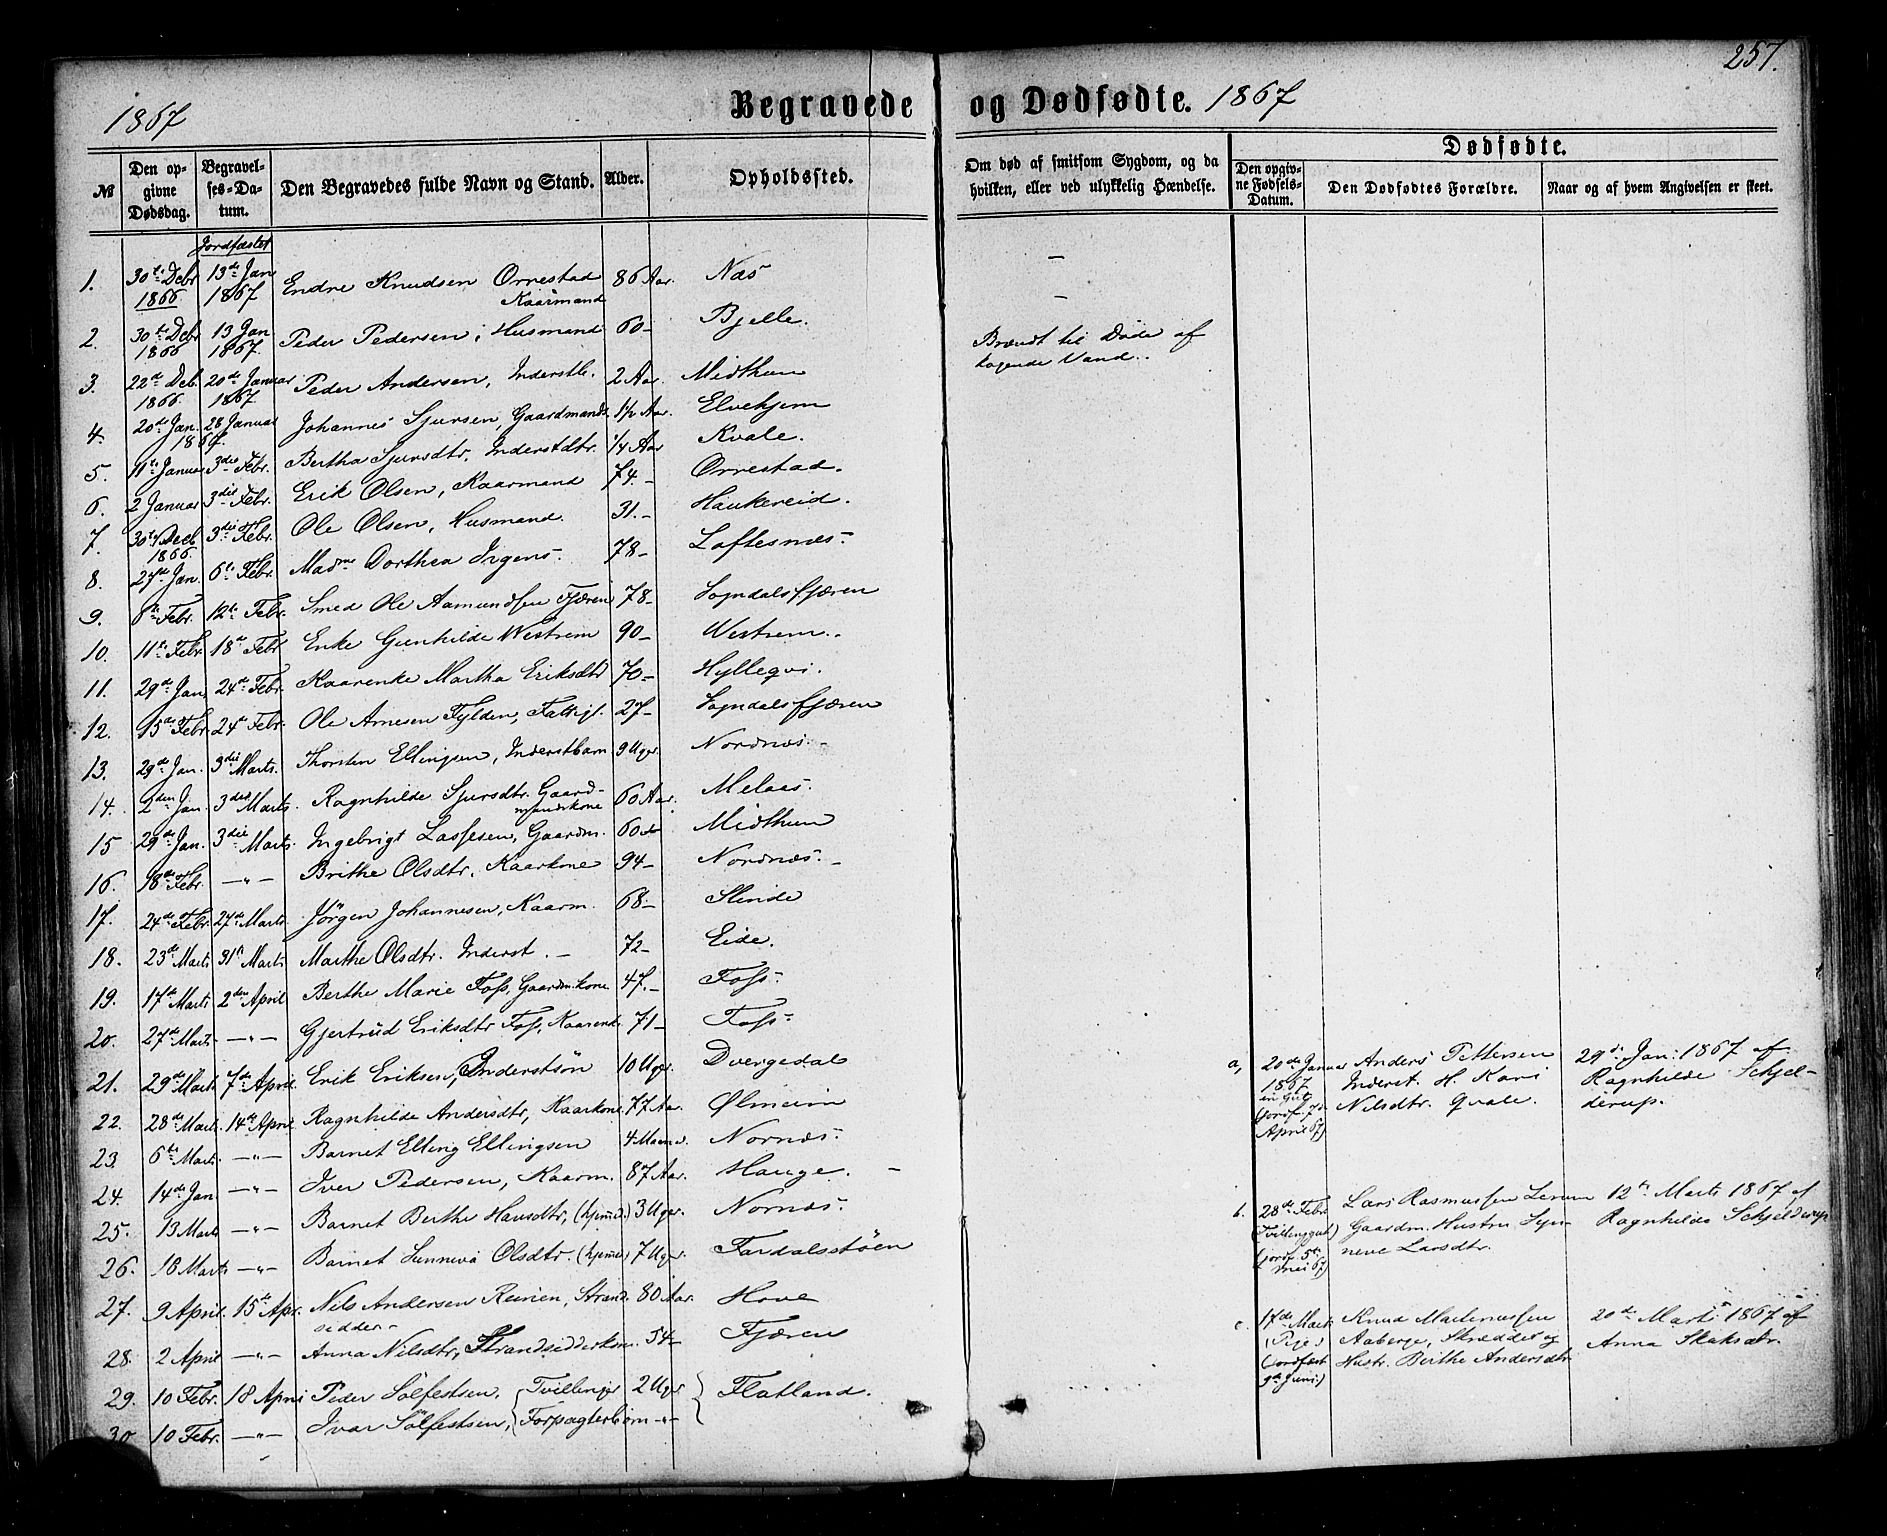 257.
1867
Begravede og Dødfødte. 1867
№
Den opgivne Dødsdag.
Begravelses-Datum.
Den Begravedes fulde Navn og Stand.
Alder.
Opholdssted.
Om død af smitsom Sygdom, og da hvilken, eller ved ulykkelig Hændelse.
Dødfødte.
Den opgivne Fødsels-Datum.
Den Dødfødtes Forældre.
Naar og af hvem Angivelsen er skeet.
Jordfæstet
1. 30te Debr 1866 13de Jan 1867 Endre Knudsen Orrestad Kaarmand 86 Aar. Næs –
2. 30te Debr 1866 13 Jan 1867. Peder Pedersen, Husmand 60– Bjelle. –
3. 22de Deb. 1866. 20de Januar 1867. Peder Andersen, Inderstb. 2 Aar. Midthun Brændt til Døde af kogende Vand.
4. 20de Jan. 1867. 28 Januar Johannes Sjursen, Gaardmands. 1½ Aar. Elvekjem
5. 11te Januar 3die Febr. Bertha Sjursdtr. Inderstdtr. ¼ Aar Kvale.
6. 2 Januar 3die Febr. Erik Olsen, Kaarmand 74.– Orrestad.
7. 30te Decb 1866. 3die Febr. Ole Olsen, Husmand. 31.– Haukereid.
8. 27de Jan. 6te Febr. Madme Dorthea Irgens. 78– Loftesnæs.
9. 8de Febr. 12te Febr. Smed Ole Aamundsen Fjæren 78– Sogndalsfjæren
10. 11te Febr 18de Febr Enke Gunhilde Westrem 90– Westrem.
11. 29de Jan. 24de Febr. Kaarenke Martha Eriksdtr 70– Hyllegvi.
12. 15de Febr 24de Febr. Ole Arnesen Fylden, Fattigl. 27– Sogndalsfjæren
13. 29de Jan. 3die Marts. Thorsten Ellingsen, Inderstbarn 9 Uger. Nordnæs.
14. 2den Jan. 3die Marts. Ragnhilde Sjursdtr. Gaardmandskone 60 Aar. Melaas.
15 29de Jan. 3die Marts. Ingebrigt Lassesen, Gaardm. 60 Midthun
16. 18de Febr. –"– Brithe Olsdtr. Kaarkone 94– Nordnæs.
17. 24de Febr. 27de Marts. Jörgen Johannesen, Kaarm. 68– Slinde
18. 23de Marts 31te Marts. Marthe Olsdtr. Inderst. – 72– Eide.
19. 17de Marts 2den April Berthe Marie Foss, Gaardm.kone 47.– Foss.
20. 27de Marts. –"– Gjertrud Eriksdtr Foss, Kaarenk. 71– Foss.
21. 29de Marts 7de April. Erik Eriksen, Inderstsøn 10 Uger. Dvergedal
22. 28de Marts. 14de April. Ragnhilde Andersdtr, Kaarkone 77 Aar. Ølmeim
23. 6te Marts. –"– Barnet Elling Ellingsen 4 Maaned. Nornæs.
24. 14de Jan –"– Iver Pedersen, Kaarm. 87 Aar. Hauge. –
25. 13 Marts –"– Barnet Berthe Hansdtr, (hjmed.) 3 Uger. Nornæs.
26. 18 Marts –"– Barnet Sunneva Olsdtr. (hjmed.) 7 Uger. Fardalsstøen
27. 9 April. 15de Apr. Nils Andersen Reirien, Strandsidder– 80 Aar. Hove
28. 2 April –"– Anna Nilsdtr, Strandsidderkon. 54– Fjæren
29. 10 Febr. 18 April Peder Sölfestsen. { Tvillinger 2 Uger } Flatland.
30 10 Febr. –"– Ivar Sölfestsen, { Forpagterbörn –"–
a, 20de Januar 1867. en Gut (jordf. 7de April 67) Anders Pettersen Inderst. H. Kari Nilsdtr. Qvale. 29de Jan: 1867 af Ragnhilde Schjelderup.
b. 28de Febr (Tvillinggut) (jordf. 5te mei 67) Lars Rasmussen Lerum Gaardm. Hustru Synneve Larsdtr. 12te Marts 1867 af Ragnhilde Schjelderup
c. 17de Marts (Pige) (jordfæst 9de Juni) Knud Martenussen Aaberge, Skrædder og Hustr. Berthe Andersdtr 20de Marts 1867 af Anna Skaksdtr.